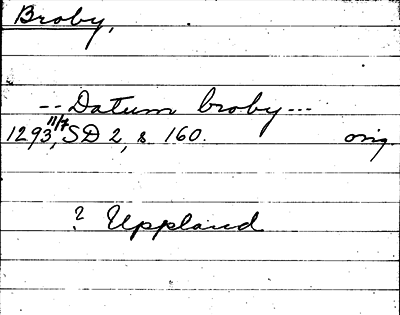 Broby,
-- Datum broby ---
1293 11/7, SD 2, s. 160. orig.
? Uppland